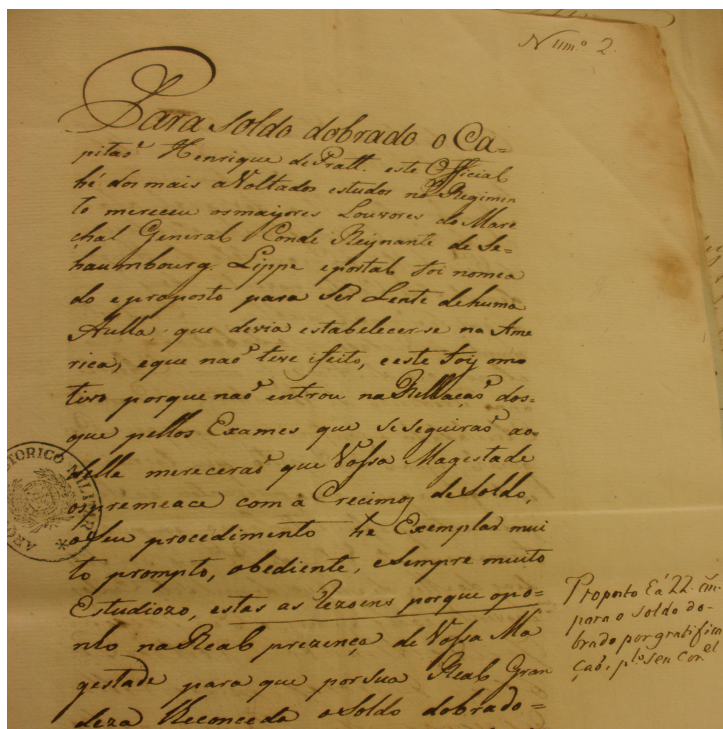 Num.º 2.
Para soldo dobrado o Ca=
pitaõ Henrique de Pratt. este Official
hé dos mais aVoltados estudos no Regimen
to mereceu os mayores Louvores do Mare
chal General Conde Reynante de Se=
haumbourg. Lippe eportal foi nomea
do eproposto para ser Lente dehuma
Aulla que devia estabelecerse na Ame
rica, eque naõ teve efeito, eeste foy omo
tivo porque naõ entrou na Rellaçaõ dos=
que pellos Exames que seseguiraõ ao
delle mereceraõ que Vossa Magestade
ospremeace com a Crecimoz deSoldo,
oSeu procedimento he Exemplar mui
to prompto, obediente, eSempre muito
Estudiozo, estas as Rezoens porque opo=
nho na Real prezença de Vossa Ma
gestade para que porSua Real Gran
deza Reconceda oSoldo dobrado=
Proposto
para o soldo do-
brado por gratifica
çaõ, p.lo seu Con.el
ARQ HISTORICO MILITAR